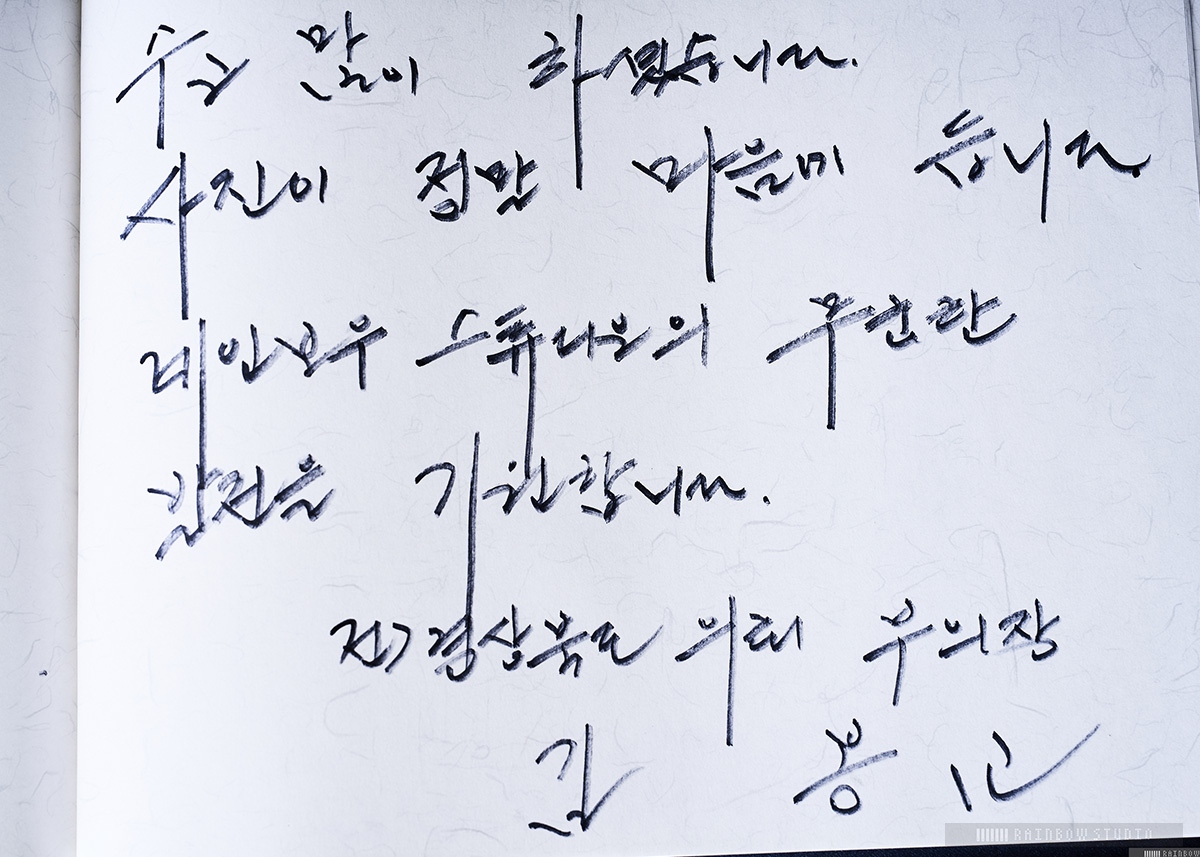 수고 많이 하셨습니다.
사진이 정말 마음에 듭니다.
레인보우 스튜디오의 무단한
발전을 기원합니다.
전) 경상북도 의회 부의장
김 봉 교
RAINBOW STUDIO
RAINBOW